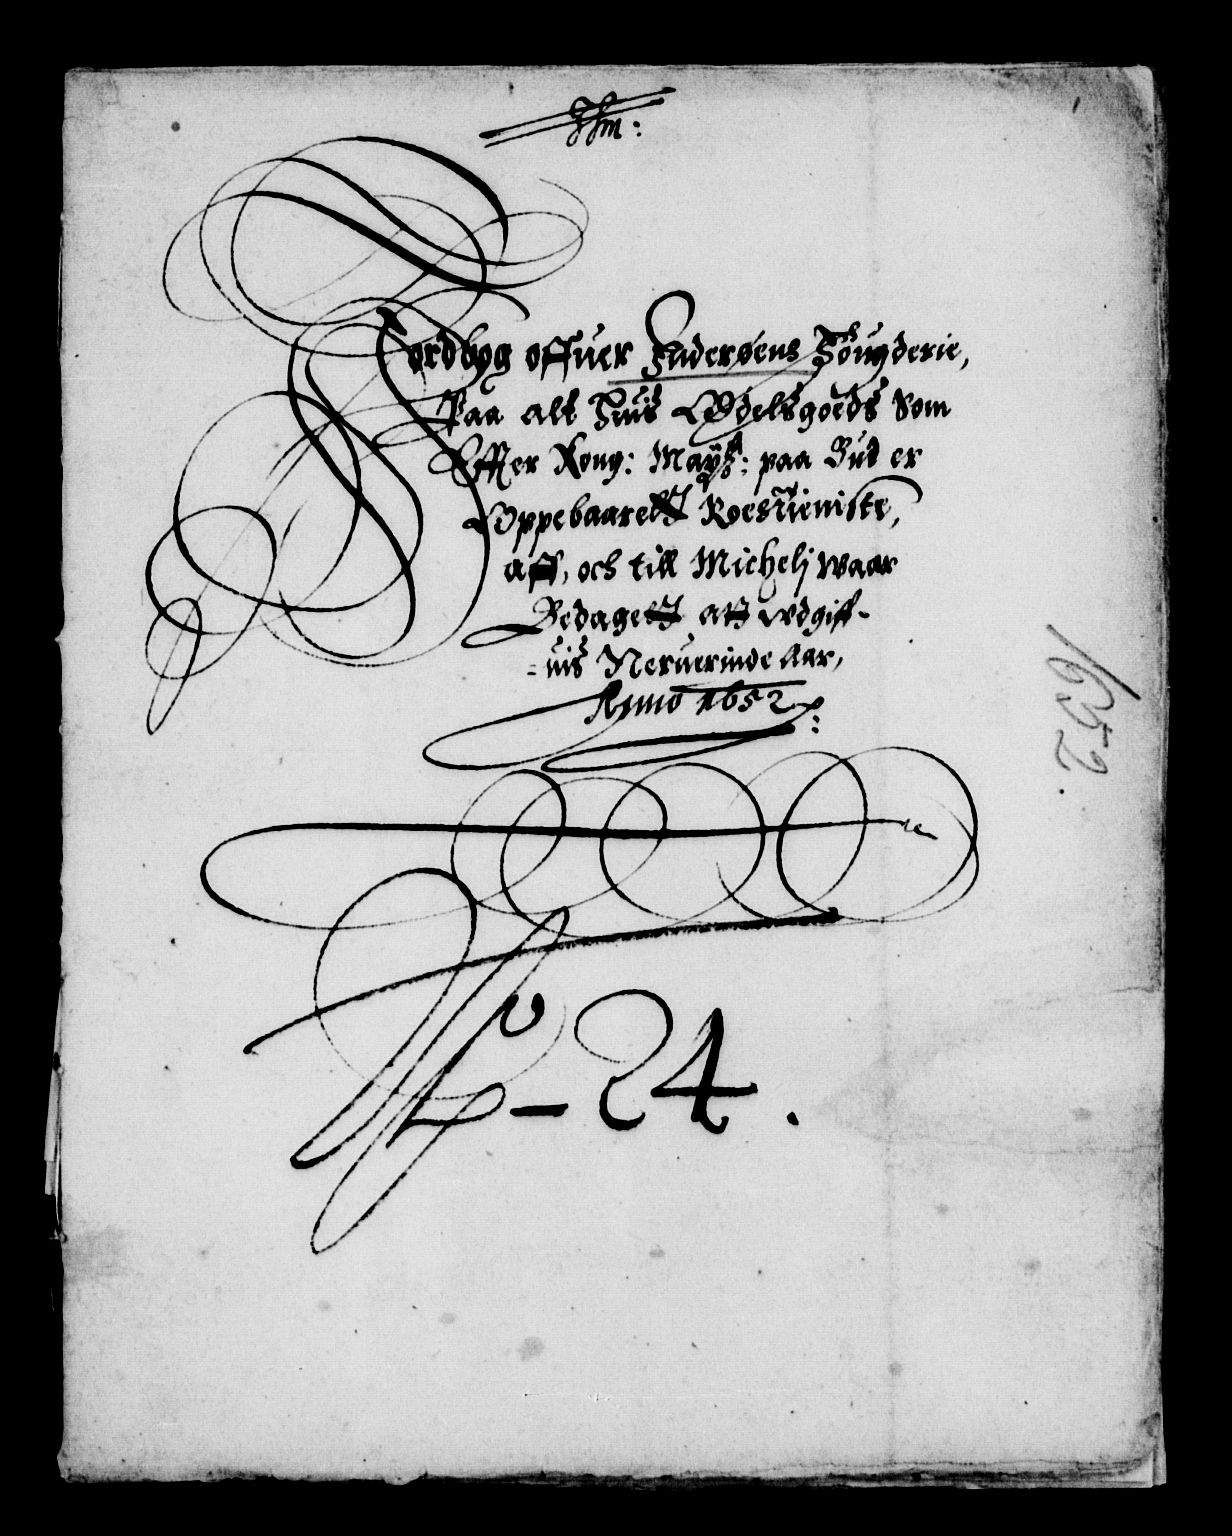 Jordbog offuer Inderøens Fougderie,
Paa alt huis Odelsgoeds Som
Effter Kong: Mayst: paa Bud er
Oppebaarelt Roestieniste,
aff, och till Michelj waar
Bedagelt att wdgiff-
-uis Neruerinde Aar,
Anno 1652
1652.
N° - 24.